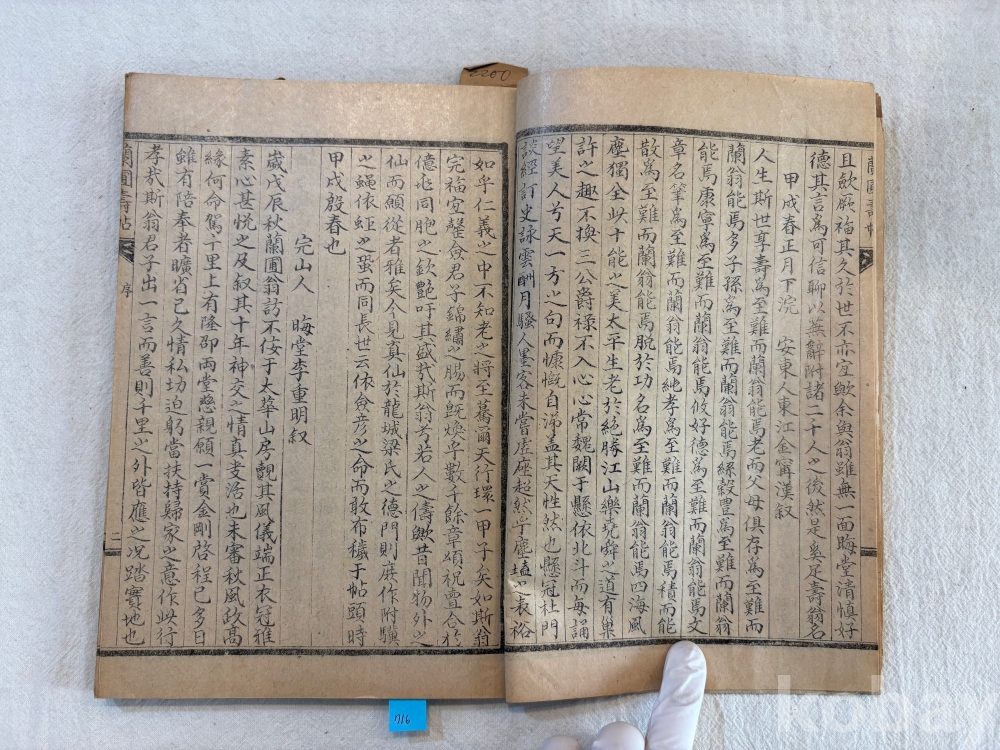 且歆厥福其久於世不亦宜歟余與翁雖無一面晦堂清愼好
德其言爲可信聊以無辭附諸二十人之後然是奚足壽翁名
甲戌春正月下浣 安東人東江金甯漢叙
人生斯世享壽爲至難而蘭翁能焉老而父母俱存爲至難而
蘭翁能焉多子孫爲至難而蘭翁能焉絲穀豊爲至難而蘭翁
能焉康寧爲至難而蘭翁能焉攸好德爲至難而蘭翁能焉文
章名筆爲至難而蘭翁能焉純孝爲至難而蘭翁能焉積而能
散爲至難而蘭翁能焉脫於功名爲至難而蘭翁能焉四海風
塵獨全此十能之美太平生老於絶勝江山樂堯舜之道有巢
許之趣不換三公爵祿不入心心常魏闕于懸依北斗而每誦
望美人兮天一方之句而慷慨自涕盖其天性然也懸冠杜門
談經訂史詠雲酬月騷人墨客未嘗虛座超然乎塵埃之表裕
如乎仁義之中不知老之將至驀爾天行環一甲子矣如斯翁
完福宜罄僉君子錦繡之腸而旣煥乎數千餘章頌祝亶合於
億兆同胞之欽艶吁其盛哉斯翁兮若人之儔歟昔聞物外之
仙而願從者雅矣今見眞仙於龍城梁氏之德門則庶作附驥
之蠅依蛩之蛩而同長世云依僉彦之命而敢布穢于帖頭時
甲戌殷春也
完山人 晦堂李重明叙
歲戊辰秋蘭圃翁訪不佞于大華山房覿其風儀端正衣冠雅
素心甚悦之及叙其十年神交之情眞妻浩也未審秋風政高
緣何命駕千里上有隆卲兩堂慈親願一賞金剛啓程已多日
雖有陪奉者曠省已久情私切迫躬當扶持歸家之意作此行
孝哉斯翁君子出一言而善則千里之外皆應之况踏實地也
蘭圃壽帖
序
二
2200
716
kobay